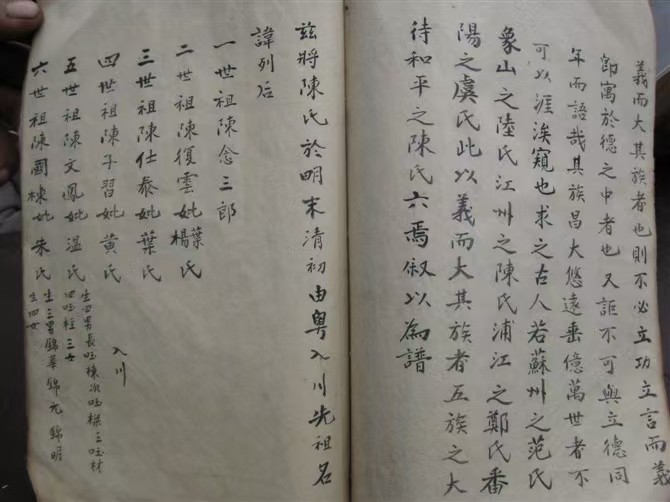 義而大其族者也則不必立功立言而義
節寓於德之中者也又詎不可與立德同
年而語哉其族昌大悠遠垂億萬世者不
可以涯涘窺也求之古人若蘇州之范氏
象山之陸氏江州之陳氏浦江之鄭氏番
陽之虞氏此以義而大其族者五族之大
待和平之陳氏六焉叙以為譜
茲將陳氏於明末清初由粵入川先祖名
諱列后
一世祖陳念三郎
二世祖陳復雲妣葉楊氏
三世祖陳仕泰妣葉氏
四世祖陳子習妣黄氏
入川
五世祖陳文鳳妣溫氏
生四男長國棟次國樑三國材
四國柱三女
六世祖陳國棟妣朱氏
生三男錦華錦元錦明
生四女